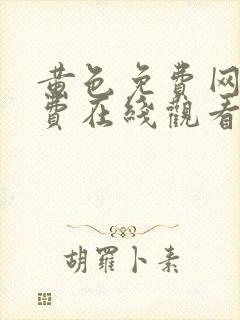 黄色免费网
费在线观看
胡罗卜素